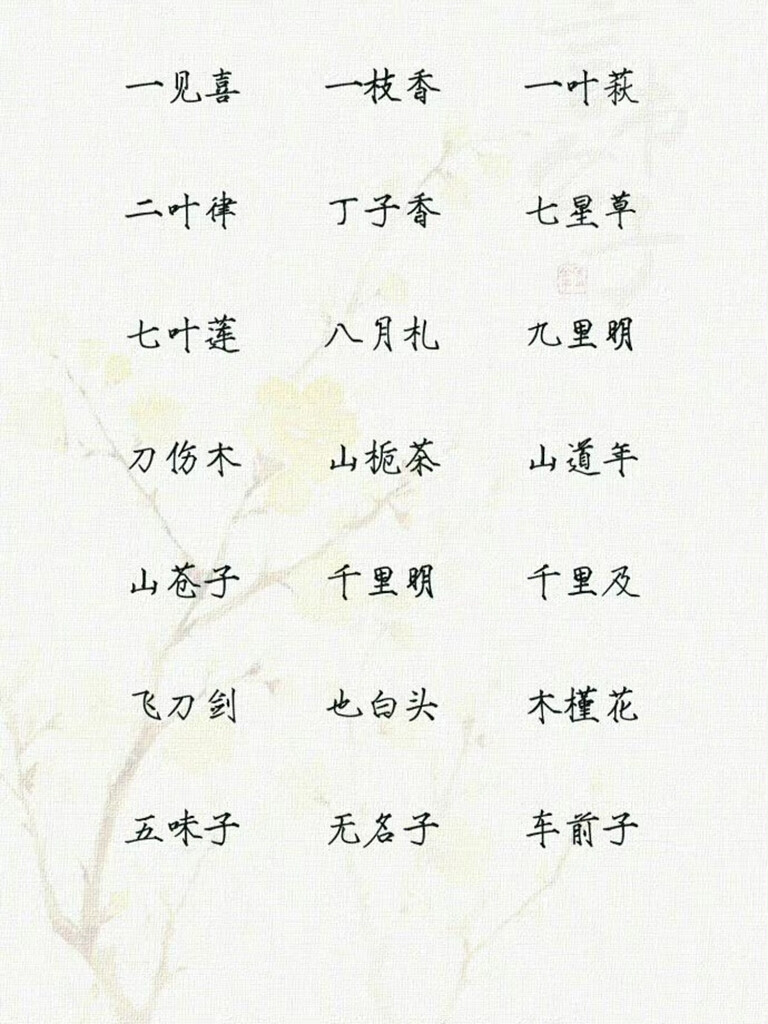 一见喜 一枝香 一叶萩
二叶律 丁子香 七星草
七叶莲 八月札 九里明
刀伤木 山栀茶 山道年
山苍子 千里明 千里及
飞刀剑 也白头 木槿花
五味子 无名子 车前子